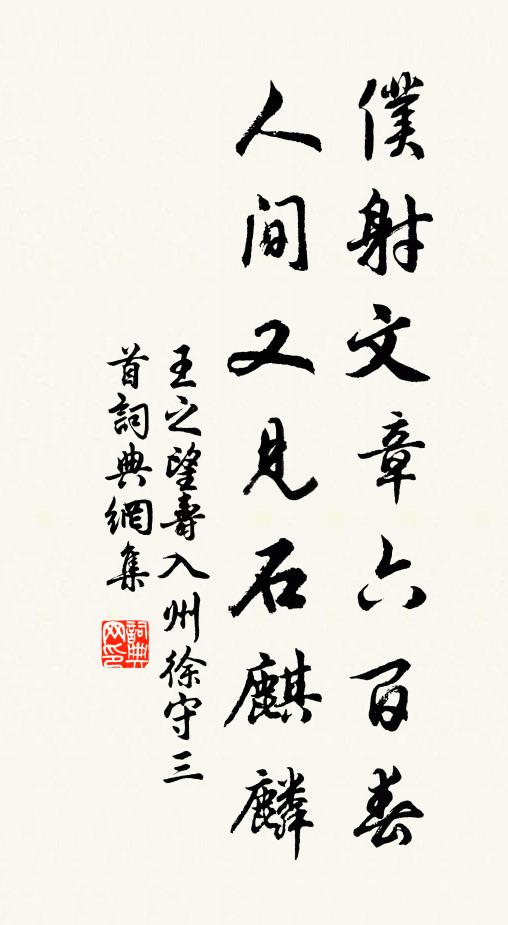 僕射文章六百春
人間又見石麒麟
王之望壽入州徐守三
首詞典網集
詞典網印